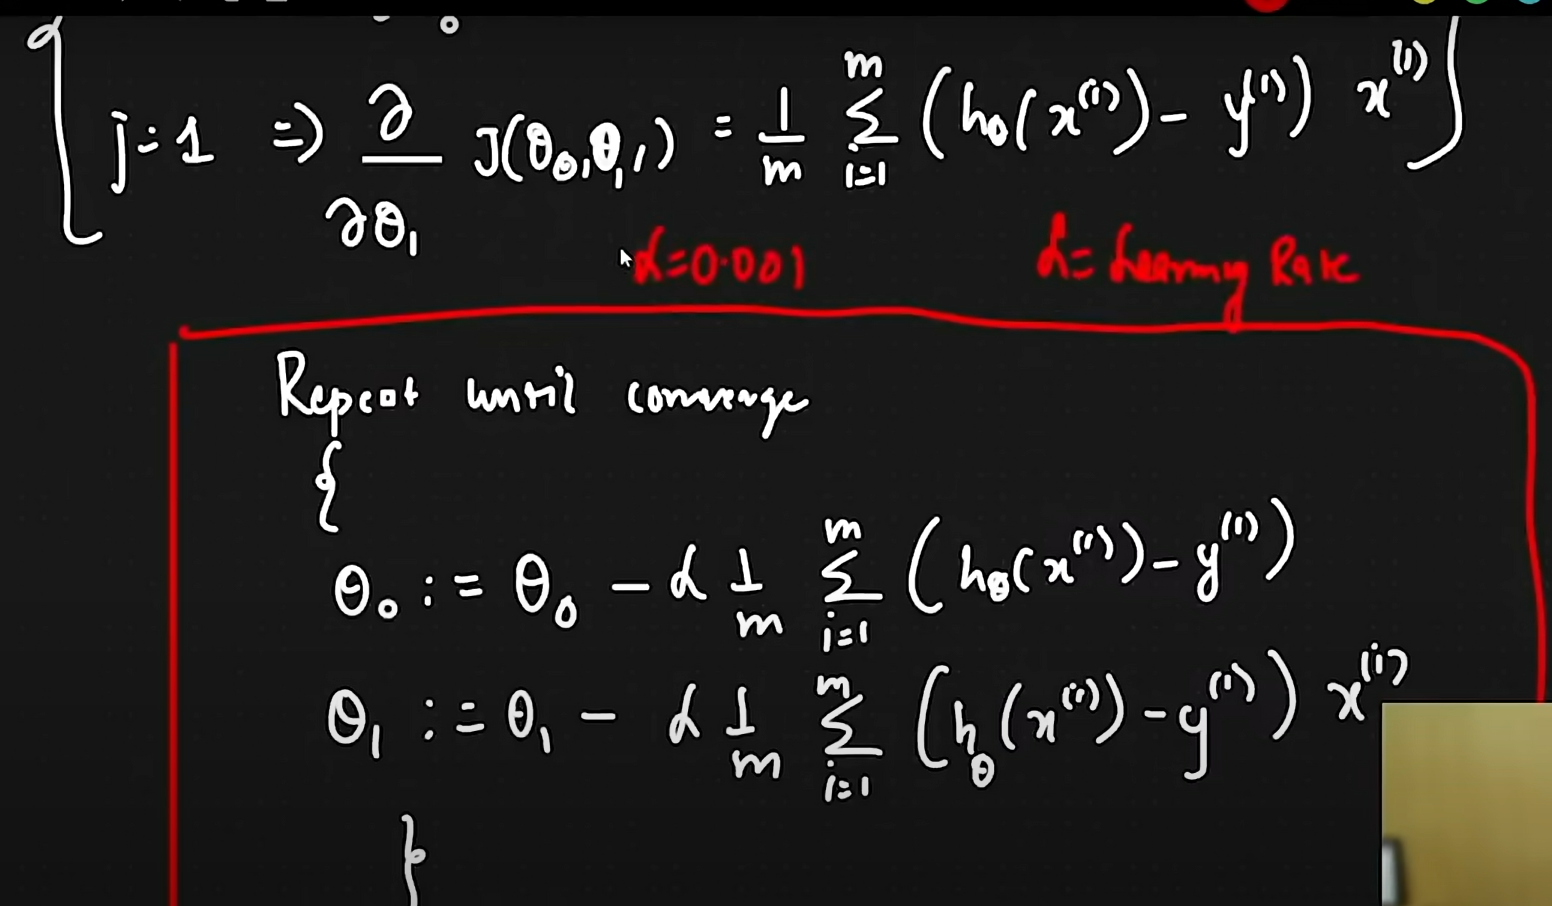 j=1 ⇒ ∂/∂θ₁ J(θ₀,θ₁) = 1/m Σ_{i=1}^{m} (h_θ(x^{(i)}) - y^{(i)}) x^{(i)}
α=0.001 α= Learning Rate
Repeat until converge
{
θ₀ := θ₀ - α 1/m Σ_{i=1}^{m} (h_θ(x^{(i)}) - y^{(i)})
θ₁ := θ₁ - α 1/m Σ_{i=1}^{m} (h_θ(x^{(i)}) - y^{(i)}) x^{(i)}
}